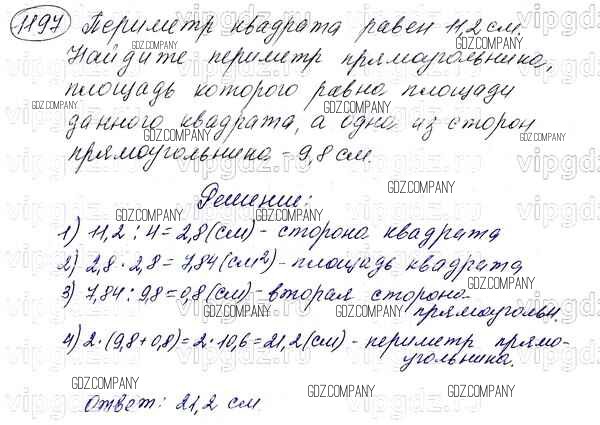 1197 Периметр квадрата равен 11,2 см.
Найдите периметр прямоугольника,
площадь которого равна площади
данного квадрата, а одна из сторон
прямоугольника - 9,8 см.
Решение:
1) 11,2 : 4 = 2,8 (см) - сторона квадрата
2) 2,8 · 2,8 = 7,84 (см²) - площадь квадрата
3) 7,84 : 9,8 = 0,8 (см) - вторая сторона
прямоугольн.
4) 2 · (9,8 + 0,8) = 2 · 10,6 = 21,2 (см) - периметр прямо-
угольника.
Ответ: 21,2 см